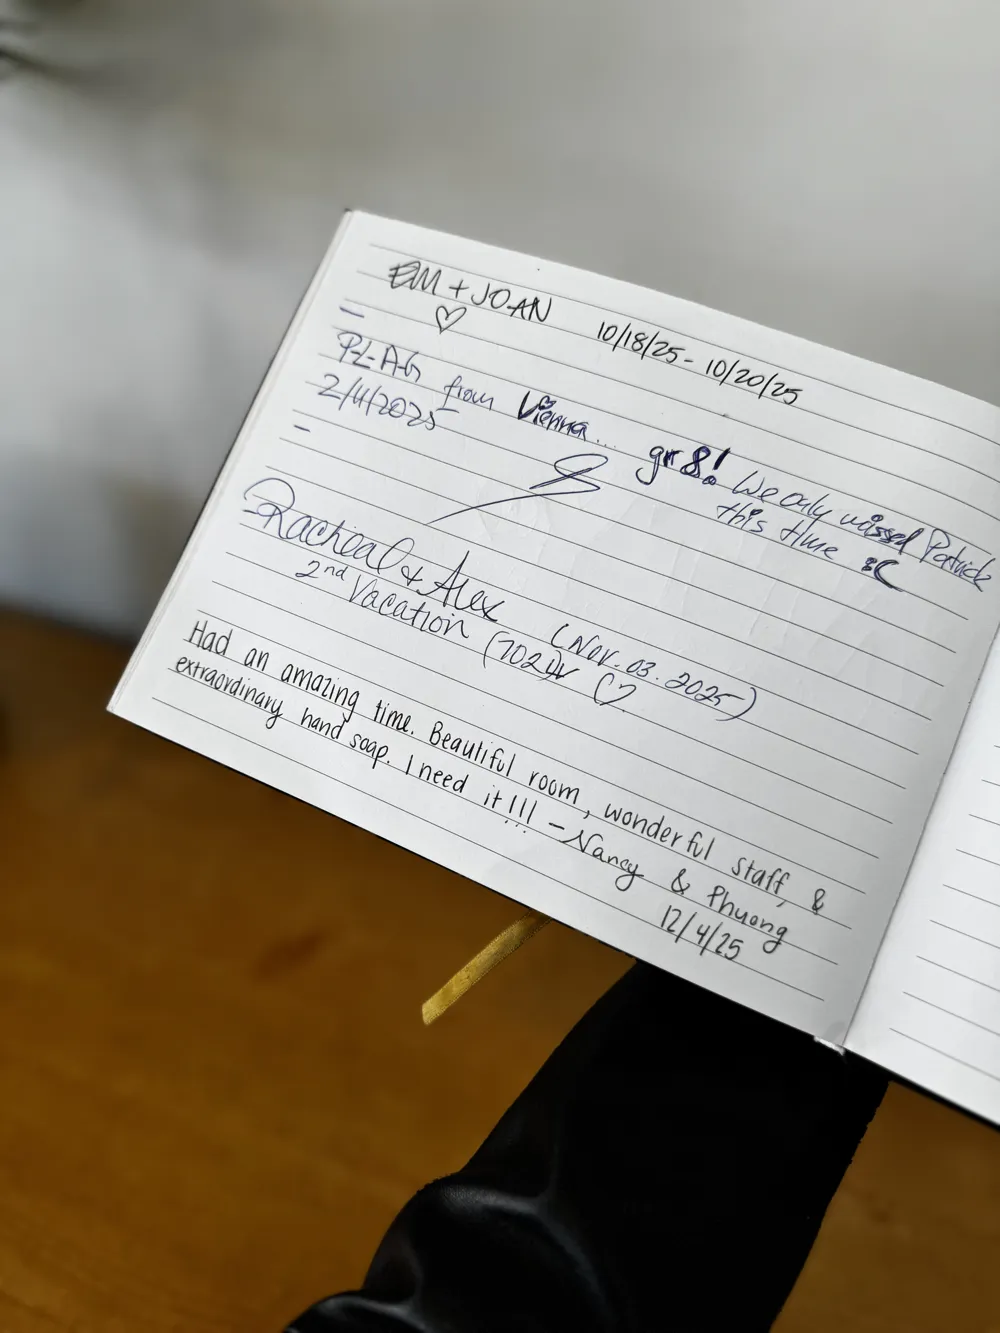 EM + JOAN 10/18/25 - 10/20/25
from Vienna... gr8! We only missed Patrick
2/11/2025 this time :(
Racheal & Alex (Nov. 03. 2025)
2nd Vacation
Had an amazing time. Beautiful room, wonderful staff, &
extraordinary hand soap. I need it!!! - Nancy & Phuong
12/4/25